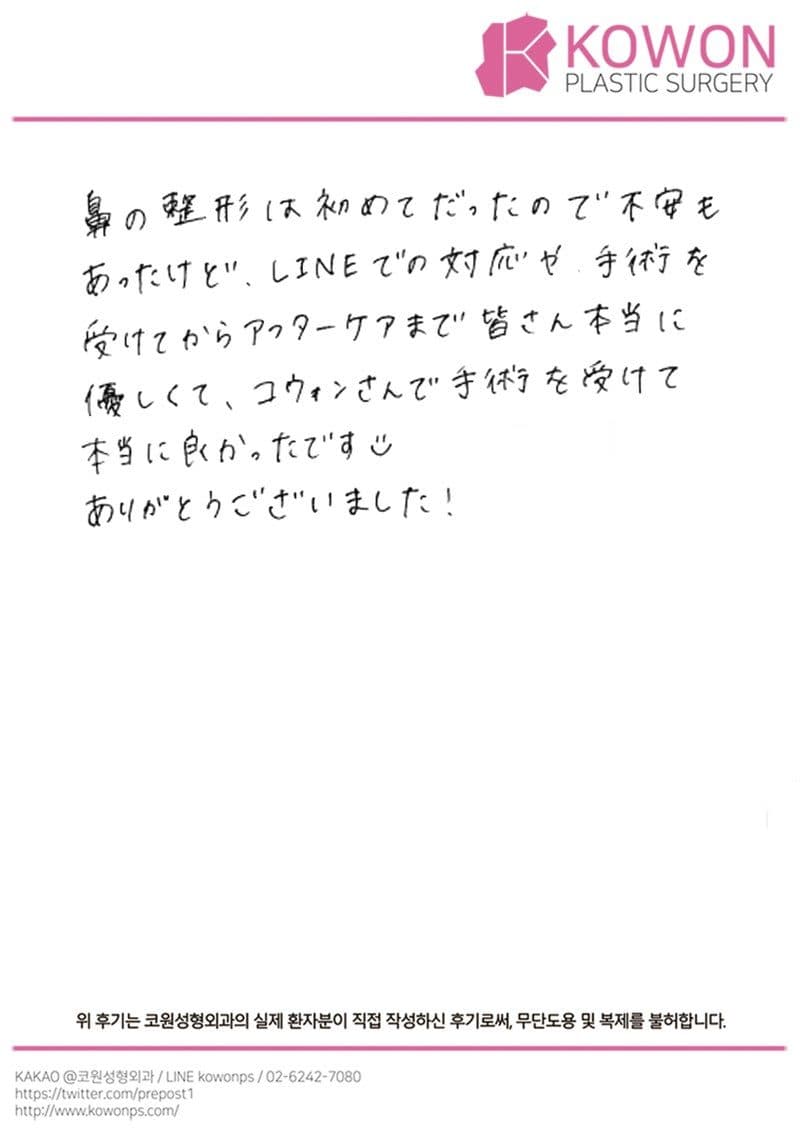 KOWON
PLASTIC SURGERY
鼻の整形は初めてだったので不安も
あったけど、LINEでの対応や、手術を
受けてからアフターケアまで皆さん本当に
優しくて、コウォンさんで手術を受けて
本当に良かったです☺
ありがとうございました！
위 후기는 코원성형외과의 실제 환자분이 직접 작성하신 후기로써, 무단도용 및 복제를 불허합니다.
KAKAO @코원성형외과 / LINE kowonps / 02-6242-7080
https://twitter.com/prepost1
http://www.kowonps.com/